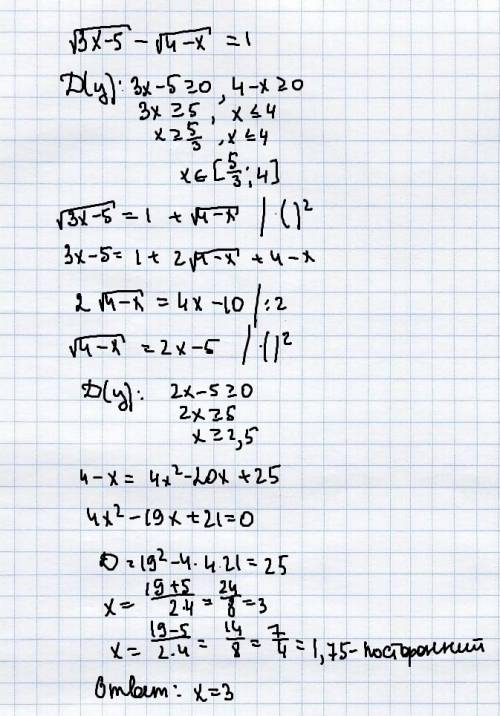 √3x-5 - √4-x = 1
D(y): 3x-5≥0, 4-x≥0
3x≥5, x≤4
x≥5/3, x≤4
x∈[5/3; 4]
√3x-5 = 1 + √4-x |·()²
3x-5 = 1 + 2√4-x + 4-x
2√4-x = 4x-10 |:2
√4-x = 2x-5 |·()²
D(y): 2x-5≥0
2x≥5
x≥2,5
4-x = 4x²-20x+25
4x²-19x+21=0
D=19²-4·4·21=25
x= 19+5/2·4 = 24/8 = 3
x= 19-5/2·4 = 14/8 = 7/4 = 1,75 - посторонний
Ответ: x=3